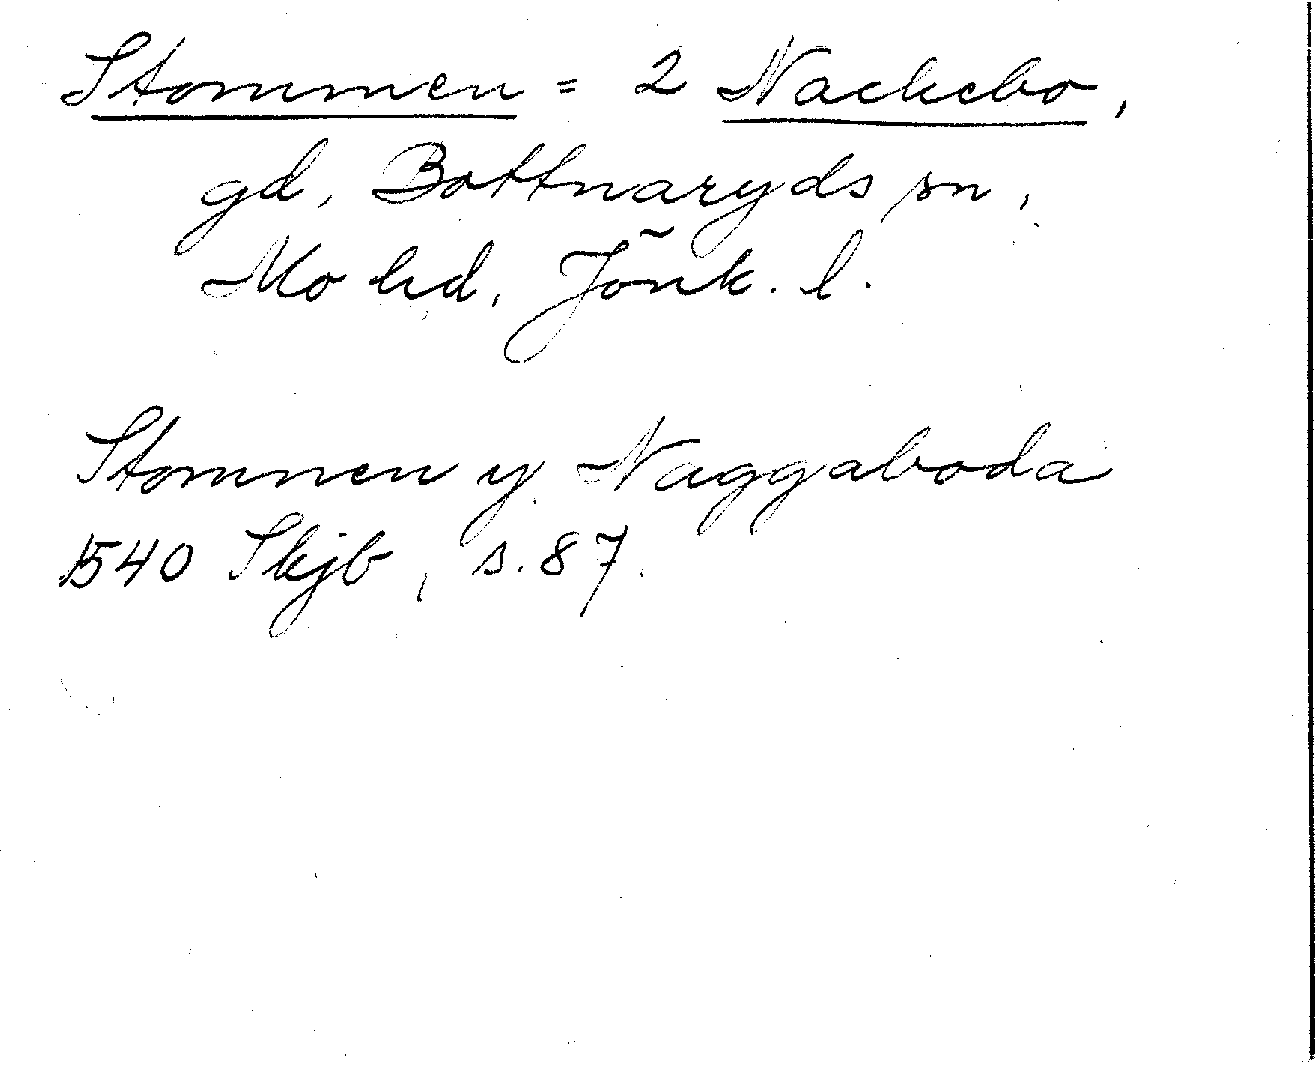 Stommen = 2 Nackebo,
gd, Bottnaryds sn,
Mo hd, Jönk. l.
Stommen y Naggaboda
1540 Skjb, s. 87.